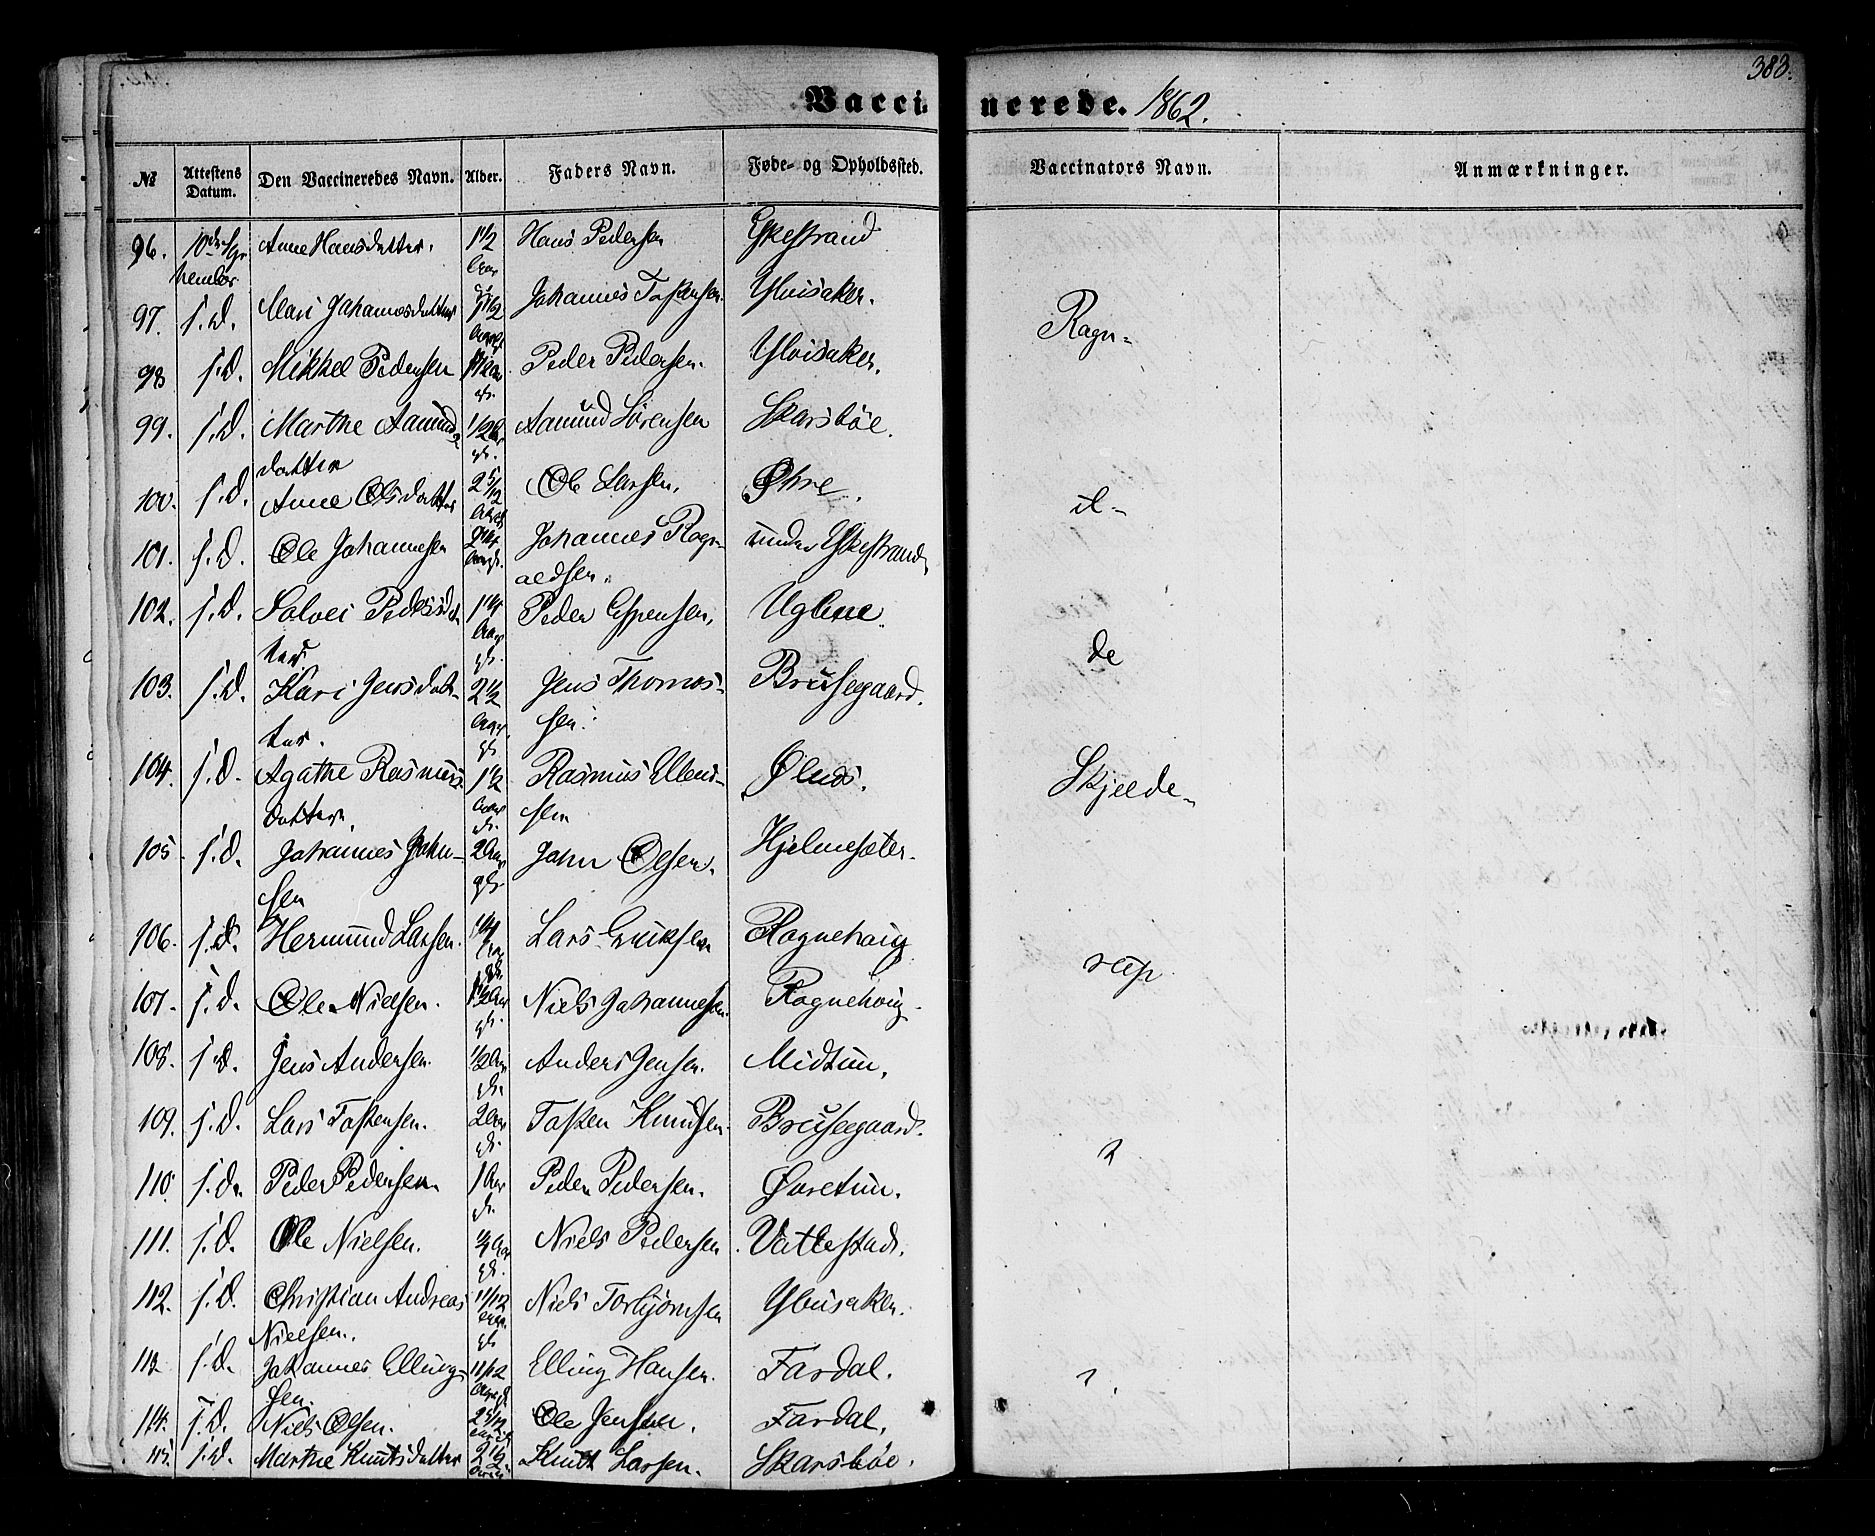 383.
Vaccinerede. 1862.
№ Attestens Datum. Den Vaccineredes Navn. Alder. Faders Navn. Føde- og Opholdssted. Vaccinators Navn. Anmærkninger.
96. 10de Anne Hansdatter. 1 1/2 Hans Pedersen Yskestrand
97. s.d. Mari Johannesdatter 1 1/2 Johannes Tostensen. Ylvisaker. Ragn-
98 s.d. Mikkel Pedersen Peder Pedersen. Ylvisaker.
99. s.d. Marthe Aamunds 1/2 Aar Aamund Sørensen Skarsbøe.
datter
100. s.d. Anne Olsdatter 2 5/12 Ole Larsen. Øhre. il-
101. s.d. Ole Johannesen Johannes Ragn- under Yskestrand
aldsen.
102. s.d. Solvei Pedersdat 1 1/4 Peder Espensen. Uglene. de
ter
103. s.d. Kari Jensdat- 2 1/2 Jens Thomas- Brusegaard.
ter. sen.
104. s.d. Agathe Rasmus 1 1/2 Rasmus Ellend- Ølnæs. Skjelde-
datter. sen
105 s.d. Johannes John- 2 Aar John Olsen. Hjelmesæter.
sen gl.
106. s.d. Hermund Larsen. 1 1/4 Lars Eriksen Ragnehaug rup
107. s.d. Ole Nielsen. 1 1/2 Aar Niels Johannesen. Ragnehoug.
108. s.d. Jens Andersen. 1/2 Aar Anders Jensen. Midtun.
gl.
109. s.d. Lars Tostensen. 2 Aar Tosten Knudsen. Brusegaard.
gl.
110. s.d. Peder Pedersen 1 Aar Peder Pedersen. Øvretun.
gl.
111. s.d. Ole Nielsen. Niels Pedersen Vatlestad.
112. s.d. Christian Andreas 11/12 Niels Torbjørnsen Ylvisaker.
Nielsen.
113 s.d. Johannes Elling- 11/12 Elling Hansen. Fardal.
sen.
114. s.d. Niels Olsen. 2 5/12 Ole Jensen. Fardal.
115. s.d. Marthe Knutsdatter 2 1/2 Knut Larsen. Skarsbøe.